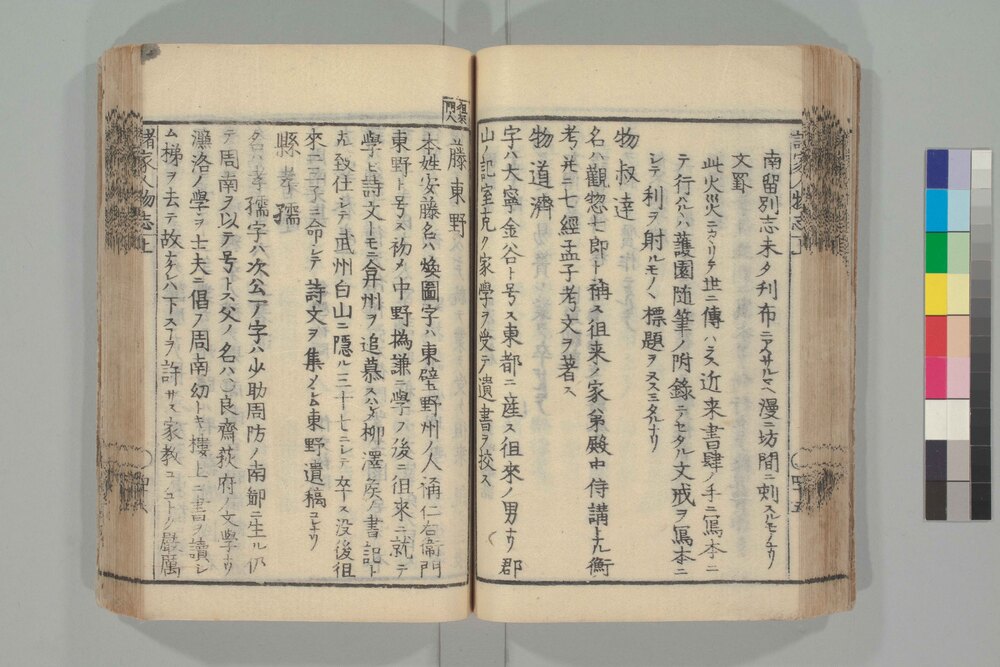 南留別志未タ刋布ニアラサルマヘ漫ニ坊間ニ刻スルモノナリ
文罫
此火災ニカヽリテ世ニ傳ハラス近来書肆ノ手ニ寫本ニ
テ行ハルヽハ蘐園随筆ノ附錄ニテセタル文戒ヲ寫本ニ
シテ利ヲ射ルモノヽ標題ヲヌスミタルナリ
物叔達
名ハ觀惣七郎ト稱ス徂来ノ家弟殿中侍講トナル衡
考并ニ七經孟子考文ヲ著ス
物道濟
字ハ大寧金谷ト号ス東都ニ産ス徂來ノ男ナリ郡
山ノ記室克ク家學ヲ受テ遺書ヲ校ス
徂徠門人
藤東野
本姓安藤名ハ煥圖字ハ東壁野州ノ人稱仁右衛門
東野ト号ス初メ中野撝謙ニ學フ後ニ徂來ニ就テ
學ヒ詩文トモニ弇州ヲ追慕ス
柳澤矦ノ書記ト
ナル致仕シテ武州白山ニ隱ル三十七ニシテ卒ス没後徂
來二三子ニ命シテ詩文ヲ集メシム東野遺稿コレナリ
縣孝孺
名ハ孝孺字ハ次公一ノ字ハ少助周防ノ南鄙ニ生ル仍
テ周南ヲ以テ号トス父ノ名ハ良齋荻府ノ文學ナリ
濂洛ノ學ヲ士夫ニ倡フ周南幼トキ樓上ニ書ヲ讀シ
ム梯ヲ去テ故ナケレハ下ヿヲ許サス家教コヽトク嚴厲
諸家人物志 上